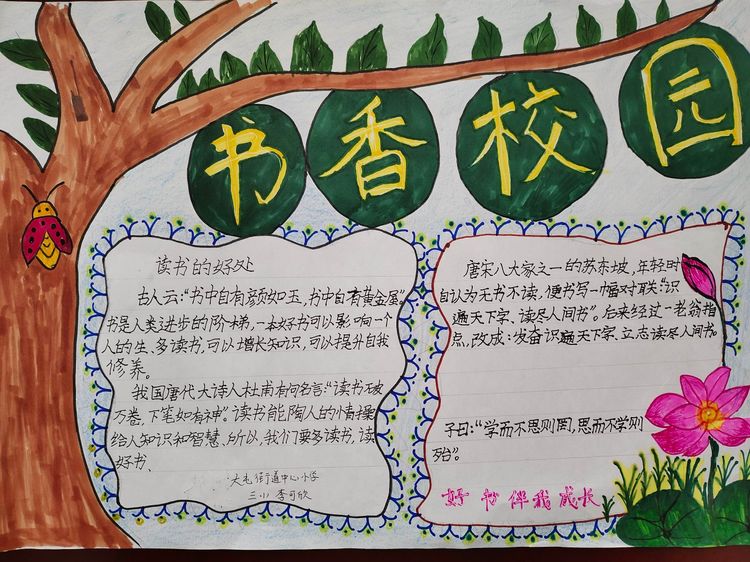 书香校园
读书的好处
古人云:“书中自有颜如玉,书中自有黄金屋”
书是人类进步的阶梯,一本好书可以影响一个
人的生、多读书,可以增长知识,可以提升自我
修养。
我国唐代大诗人杜甫有句名言:“读书破
万卷,下笔如有神”。读书能陶人的情操
给人知识和智慧.所以,我们要多读书,读
好书、
街道中心小学
三小 李可欣
唐宋八大家之一的苏东坡,年轻时
自认为无书不读,便书写一幅对联:“识
遍天下字、读尽人间书”。后来经过一老翁指
点,改成:发奋识遍天下字,立志读尽人间书。
子曰:“学而不思则罔,思而不学则
殆”。
好书伴我成长